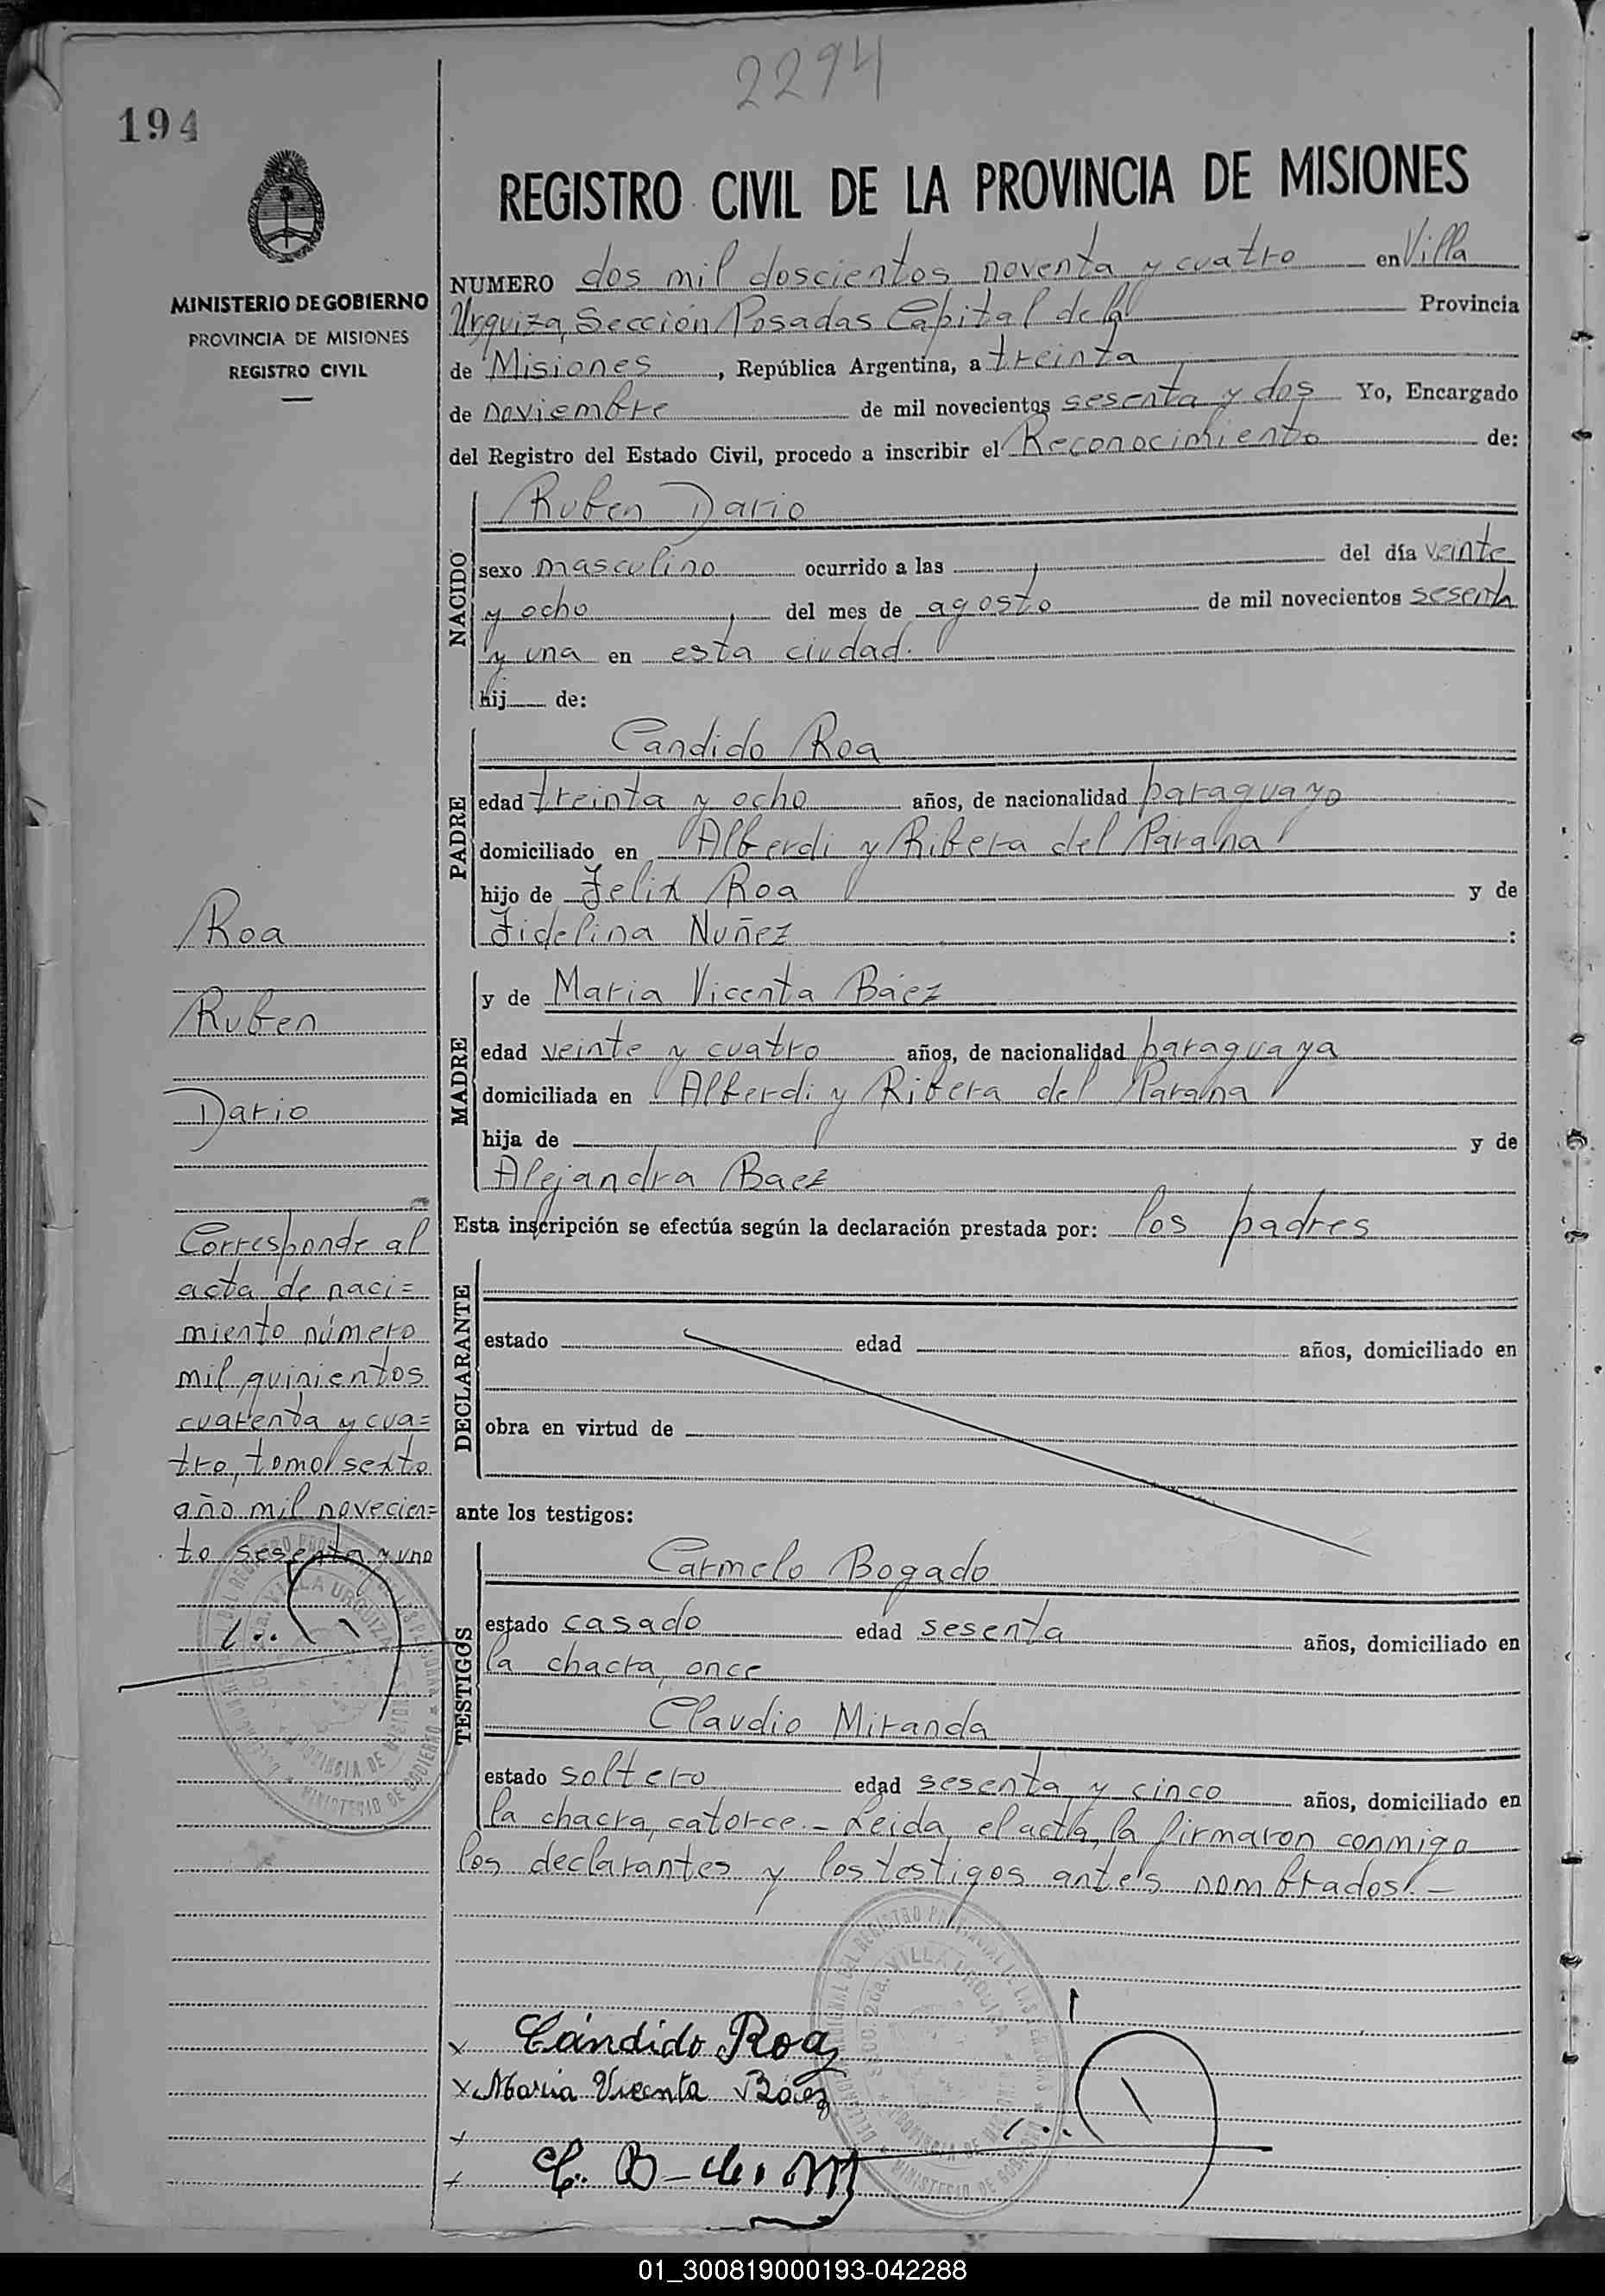 2294
194
REGISTRO CIVIL DE LA PROVINCIA DE MISIONES
MINISTERIO DE GOBIERNO
PROVINCIA DE MISIONES
REGISTRO CIVIL
NUMERO dos mil doscientos noventa y cuatro en Villa
Urquiza, Sección Posadas Capital de la Provincia
de Misiones, República Argentina, a treinta
de noviembre de mil novecientos sesenta y dos Yo, Encargado
del Registro del Estado Civil, procedo a inscribir el Reconocimiento de:
NACIDO
Ruben Dario
sexo masculino ocurrido a las del día veinte
y ocho del mes de agosto de mil novecientos sesenta
y una en esta ciudad.
hij de:
PADRE
Candido Roa
edad treinta y ocho años, de nacionalidad paraguayo
domiciliado en Alberdi y Ribera del Parana
hijo de Felix Roa y de
Fidelina Nuñez :
MADRE
y de Maria Vicenta Báez
edad veinte y cuatro años, de nacionalidad paraguaya
domiciliada en Alberdi y Ribera del Parana
hija de y de
Alejandra Baez
Esta inscripción se efectúa según la declaración prestada por: los padres
DECLARANTE
estado edad años, domiciliado en
obra en virtud de
ante los testigos:
TESTIGOS
Carmelo Bogado
estado casado edad sesenta años, domiciliado en
la chacra once
Claudio Miranda
estado soltero edad sesenta y cinco años, domiciliado en
la chacra, catorce.- Leida el acta, la firmaron conmigo
los declarantes y los testigos antes nombrados.-
Roa
Ruben
Dario
Corresponde al
acta de naci=
miento número
mil quinientos
cuarenta y cua=
tro, tomo sexto
año mil novecien=
to sesenta y uno
VILLA URQUIZA
PROVINCIA DE MISIONES
MINISTERIO DE GOBIERNO
x Cándido Roa
x Maria Vicenta Báez
VILLA URQUIZA
PROVINCIA DE MISIONES
MINISTERIO DE GOBIERNO
01_300819000193-042288